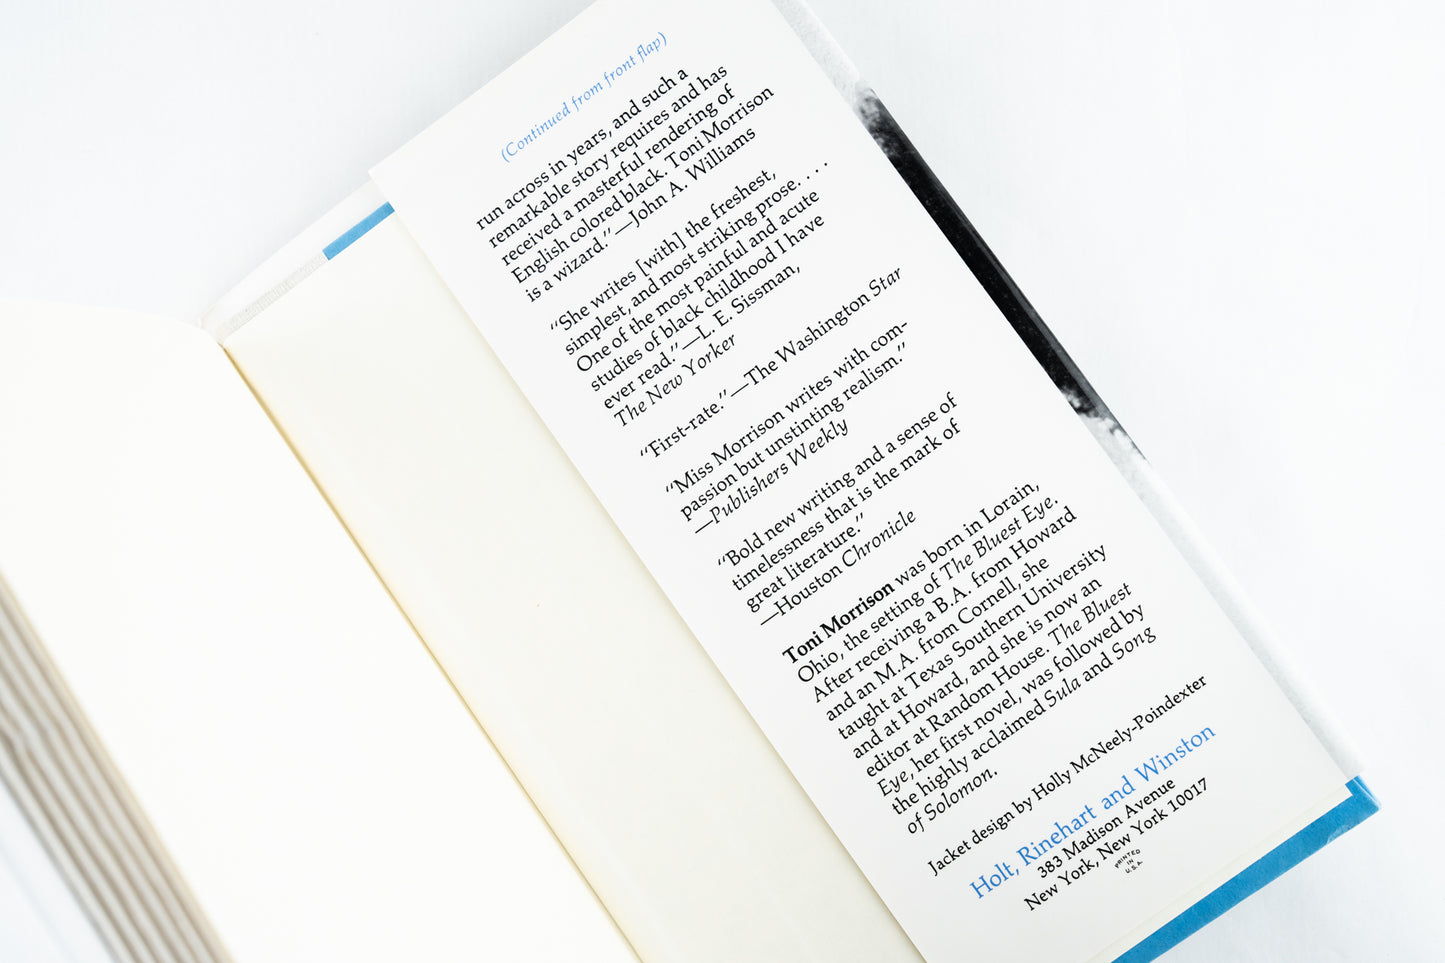 (Continued from front flap)
run across in years, and such a
remarkable story requires and has
received a masterful rendering of
English colored black. Toni Morrison
is a wizard.”—John A. Williams
“She writes [with] the freshest,
simplest, and most striking prose. . . .
One of the most painful and acute
studies of black childhood I have
ever read.”—L. E. Sissman,
The New Yorker
“First-rate.”—The Washington Star
“Miss Morrison writes with com-
passion but unstinting realism.”
—Publishers Weekly
“Bold new writing and a sense of
timelessness that is the mark of
great literature.”
—Houston Chronicle
Toni Morrison was born in Lorain,
Ohio, the setting of The Bluest Eye.
After receiving a B.A. from Howard
and an M.A. from Cornell, she
taught at Texas Southern University
and at Howard, and she is now an
editor at Random House. The Bluest
Eye, her first novel, was followed by
the highly acclaimed Sula and Song
of Solomon.
Jacket design by Holly McNeely-Poindexter
Holt, Rinehart and Winston
383 Madison Avenue
New York, New York 10017
PRINTED
IN
U.S.A.